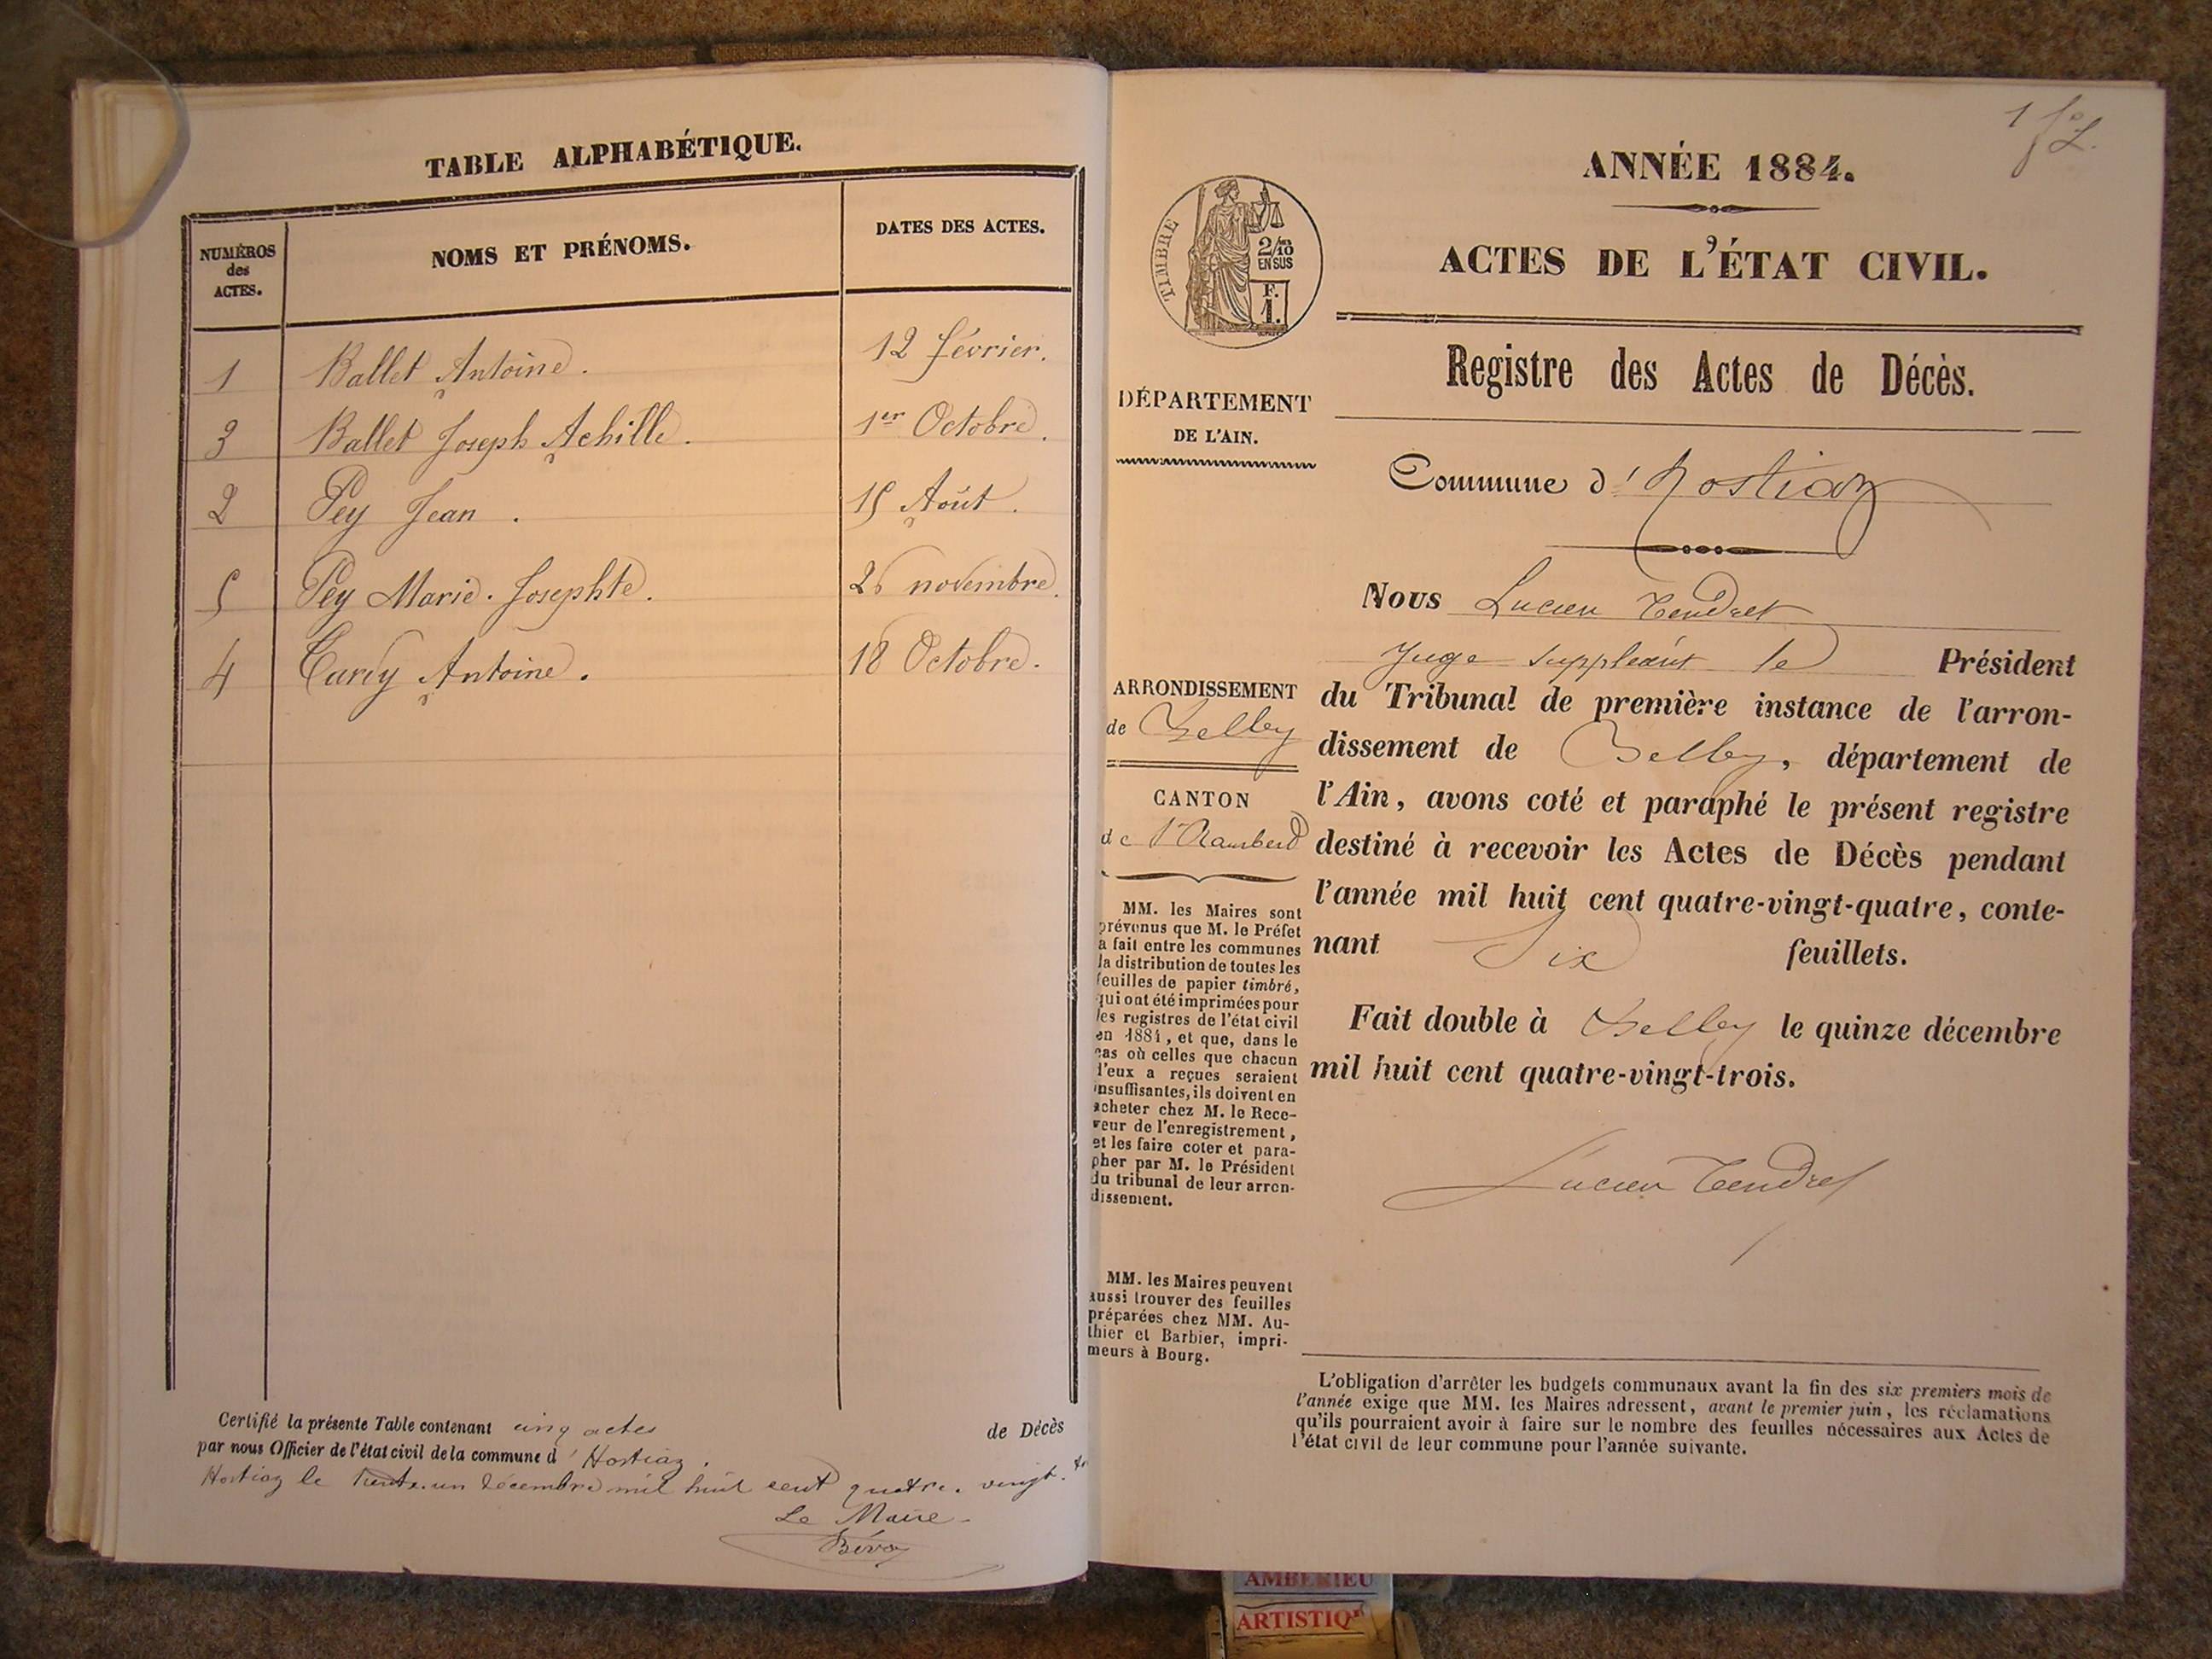 TABLE ALPHABÉTIQUE.
NUMÉROS des ACTES.
NOMS ET PRÉNOMS.
DATES DES ACTES.
1 Ballet Antoine. 12 février.
3 Ballet Joseph Achille. 1er Octobre.
2 Pey Jean. 15 Août.
5 Pey Marie-Josephte. 26 novembre.
4 Tardy Antoine. 18 Octobre.
Certifié la présente Table contenant cinq actes de Décès
par nous Officier de l'état civil de la commune d'Hostiaz.
Hostiaz le trente-un décembre mil huit cent quatre-vingt-
Le Maire
1 fo
ANNÉE 1884.
ACTES DE L'ÉTAT CIVIL.
TIMBRE
2/10
EN SUS
F.
1.
Registre des Actes de Décès.
DÉPARTEMENT
DE L'AIN.
Commune d'Hostiaz
Nous Lucien Tendret
Juge suppléant le Président
du Tribunal de première instance de l'arron-
dissement de Belley, département de
l'Ain, avons coté et paraphé le présent registre
destiné à recevoir les Actes de Décès pendant
l'année mil huit cent quatre-vingt-quatre, conte-
nant Six feuillets.
Fait double à Belley le quinze décembre
mil huit cent quatre-vingt-trois.
Lucien Tendret
ARRONDISSEMENT
de Belley
CANTON
de St Rambert
MM. les Maires sont
prévenus que M. le Préfet
a fait entre les communes
la distribution de toutes les
feuilles de papier timbré,
qui ont été imprimées pour
les registres de l'état civil
en 1884, et que, dans le
cas où celles que chacun
d'eux a reçues seraient
insuffisantes, ils doivent en
acheter chez M. le Rece-
veur de l'enregistrement,
et les faire coter et para-
pher par M. le Président
du tribunal de leur arron-
dissement.
MM. les Maires peuvent
aussi trouver des feuilles
préparées chez MM. Au-
thier et Barbier, impri-
meurs à Bourg.
L'obligation d'arrêter les budgets communaux avant la fin des six premiers mois de
l'année exige que MM. les Maires adressent, avant le premier juin, les réclamations
qu'ils pourraient avoir à faire sur le nombre des feuilles nécessaires aux Actes de
l'état civil de leur commune pour l'année suivante.
AMBERIEU
ARTISTIQ